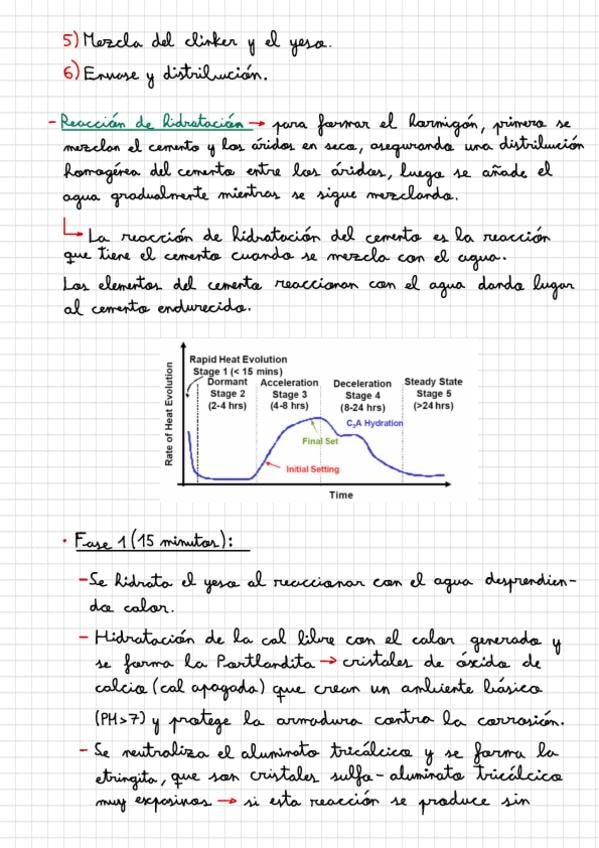 5) Mezcla del clinker y el yeso.
6) Envase y distribución.
- Reacción de hidratación → para formar el hormigón, primero se
mezclan el cemento y los áridos en seco, asegurando una distribución
homogénea del cemento entre los áridos, luego se añade el
agua gradualmente mientras se sigue mezclando.
↳ La reacción de hidratación del cemento es la reacción
que tiene el cemento cuando se mezcla con el agua.
Los elementos del cemento reaccionan con el agua dando lugar
al cemento endurecido.
Rate of Heat Evolution
Rapid Heat Evolution
Stage 1 (< 15 mins)
Dormant
Stage 2
(2-4 hrs)
Acceleration
Stage 3
(4-8 hrs)
Deceleration
Stage 4
(8-24 hrs)
Steady State
Stage 5
(>24 hrs)
C₃A Hydration
Final Set
Initial Setting
Time
• Fase 1 (15 minutos):
- Se hidrata el yeso al reaccionar con el agua desprendien-
do calor.
- Hidratación de la cal libre con el calor generado y
se forma la Portlandita → cristales de óxido de
calcio (cal apagada) que crean un ambiente básico
(PH>7) y protege la armadura contra la corrosión.
- Se neutraliza el aluminato tricálcico y se forma la
etringita, que son cristales sulfo-aluminato tricálcico
muy exposinos → si esta reacción se produce sin